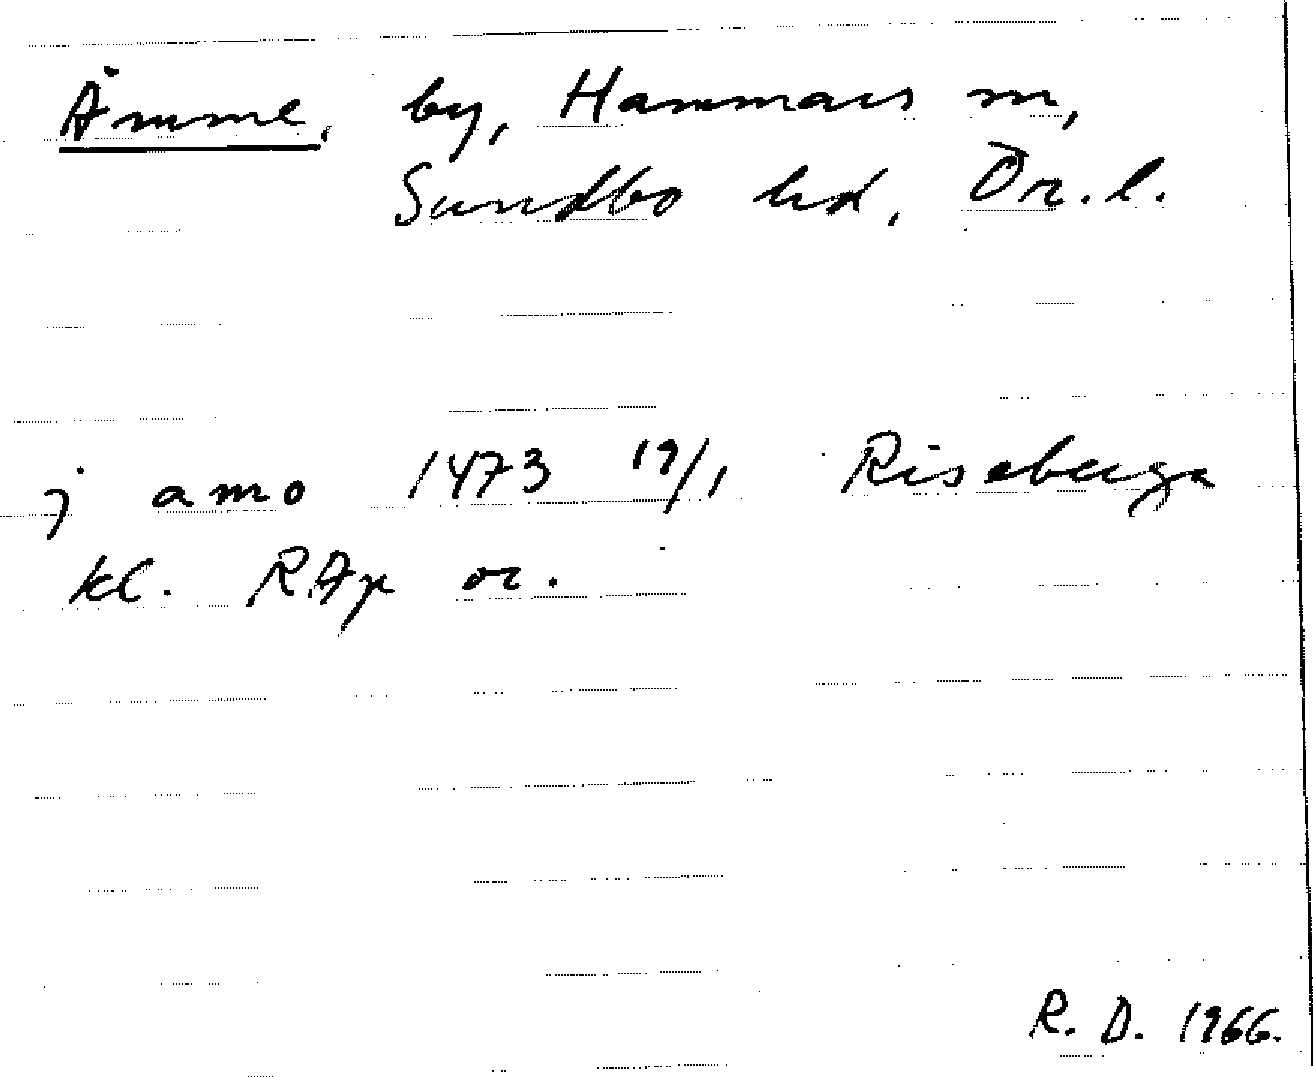 Åmme, by, Hammars sn,
Sundbo hd, Ör.l.
j amo 1473 19/1 Riseberga
kl. RAp or.
R. D. 1966.